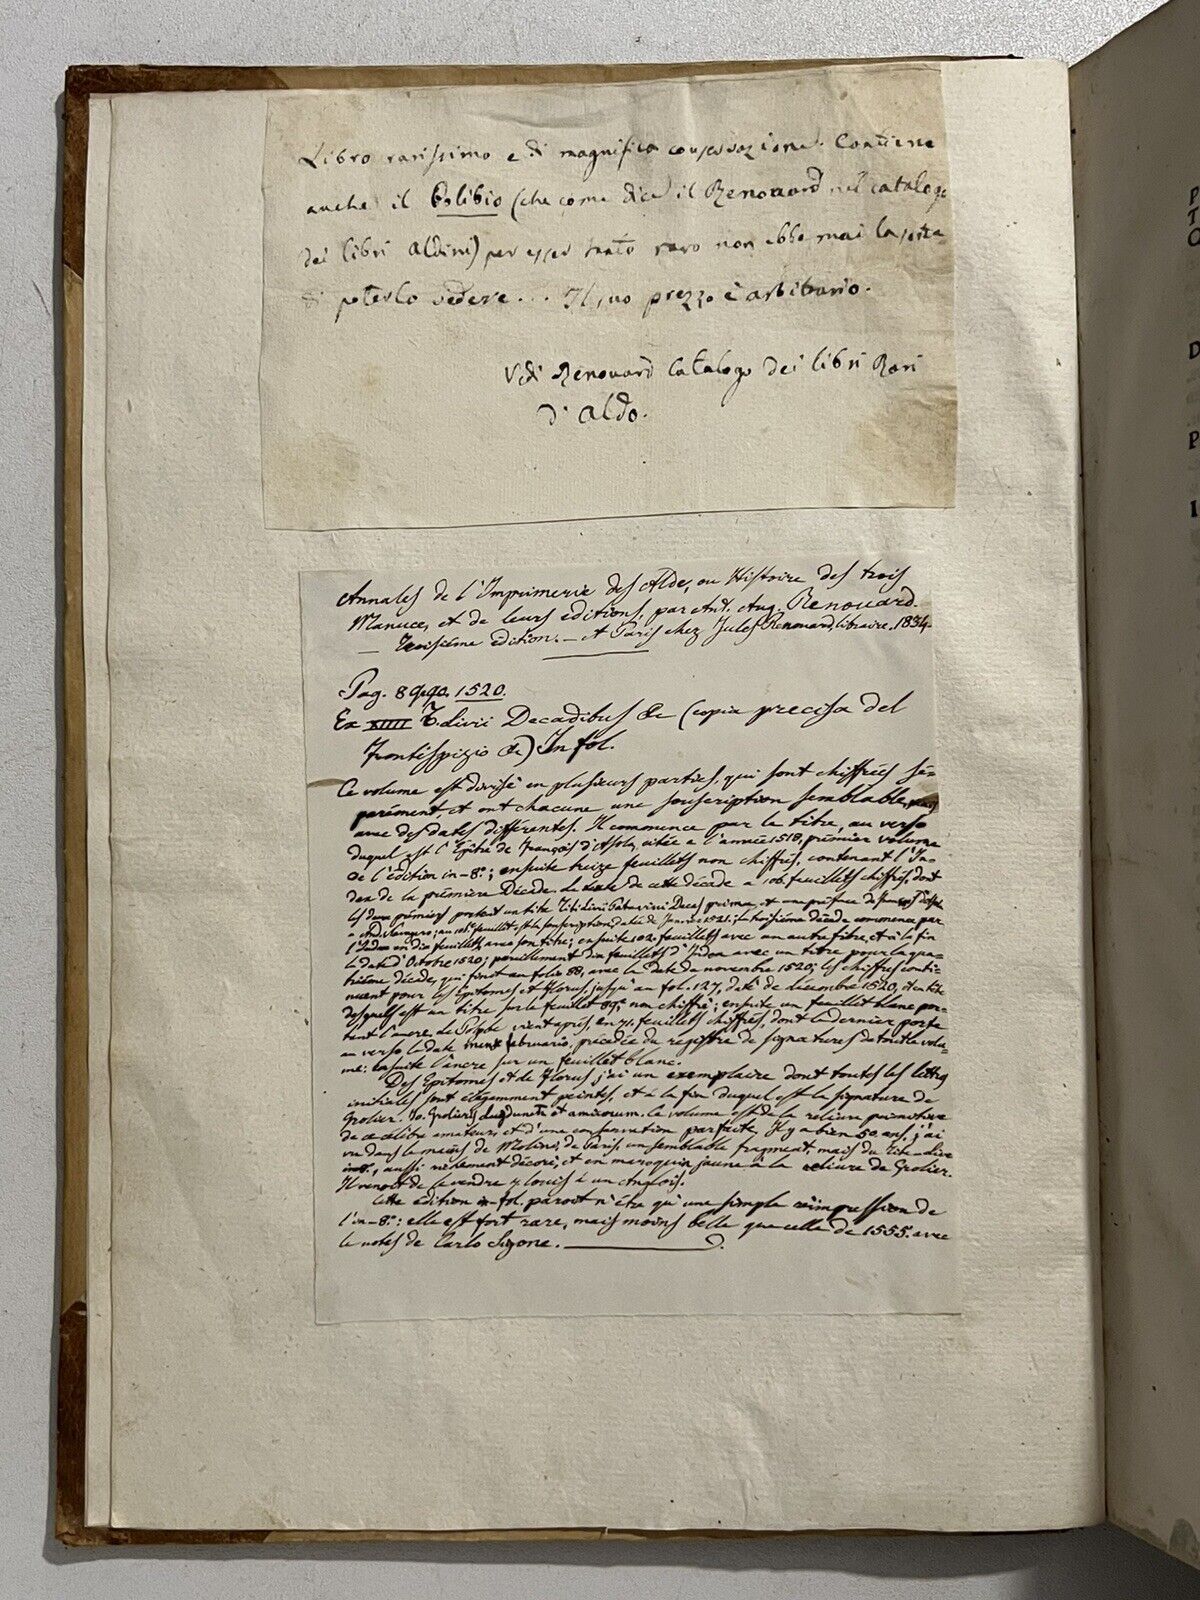 Libro rarissimo e di magnifica conservazione. Contiene
anche il Polibio (che come dice il Renouard nel catalogo
dei libri Aldini) per esser tanto raro non ebbe mai la sorte
di poterlo vedere... Il suo prezzo è arbitrario.
Vedi Renouard Catalogo dei libri Rari
d'Aldo.
Annales de l'Imprimerie des Alde, ou Histoire des trois
Manuce, et de leurs editions, par Ant. Aug. Renouard.
— Troisiéme edition. — A Paris chez Jules Renouard, libraire. 1834.
Pag. 89 1520.
Ex XIIII T. Livii Decadibus &c (copia precisa del
Frontispizio &c) In fol.
Ce volume est divisé en plusieurs parties, qui sont chiffrées sé-
parément, et ont chacune une souscription semblable,
avec des dates différentes. Il commence par le titre, au verso
duquel est l'Epitre de François d'Asola, citée a l'année 1518, prémier volume
de l'édition in-8º; ensuite treize feuillets non chiffrés, contenant l'In-
dex de la prémiere Décade. Le texte de cette décade a 106. feuillets chiffrés, dont
les deux prémiers portent un titre Titi Livii Patavini Decas prima, et une préface de
a And. Navagero; au 106e feuillet, est la souscription, datée de Janvier 1521; la troisiéme décade commence par
l'Index en dix feuillets, avec son titre; ensuite 102. feuillets avec un autre titre, et à la fin
la date d'Octobre 1520; pareillement dix feuillets d'Index avec un titre pour la qua-
triéme décade, qui finit au folio 88, avec la date de novembre 1520; les chiffres conti-
nuent pour les Epitomes et Florus, jusqu'au fol. 127, daté de décembre 1520, et en tête
desquels est un titre sur le feuillet 89e non chiffré; ensuite un feuillet blanc por-
tant l'ancre. Le Polybe vient aprés, en 71. feuillets chiffrés, dont le dernier porte
au verso la date mense februario, précédée du registre de signatures de toute le volu-
me: ensuite l'ancre sur un feuillet blanc.
Des Epitomes et de Florus j'ai un exemplaire dont toutes les lettres
initiales sont élégamment peintes, et à la fin duquel est la signature de
Grolier. Jo. Grolierij Lugdunens et amicorum. Ce volume est de la reliure primitive
de ce célèbre amateur, et d'une conservation parfaite. Il y a bien 50. ans, j'ai
vu dans les mains de Molini, de Paris, un semblable fragment, mais du Tite-Live
in-8º, aussi richement décoré, et en maroquin jaune à la reliure de Grolier.
Il venoit de le vendre 7 louis à un Anglois.
Cette édition in-fol. paroit n'être qu'une simple réimpression de
l'in-8º: elle est fort rare, mais moins belle que celle de 1555. avec
le notes de Carlo Sigone.